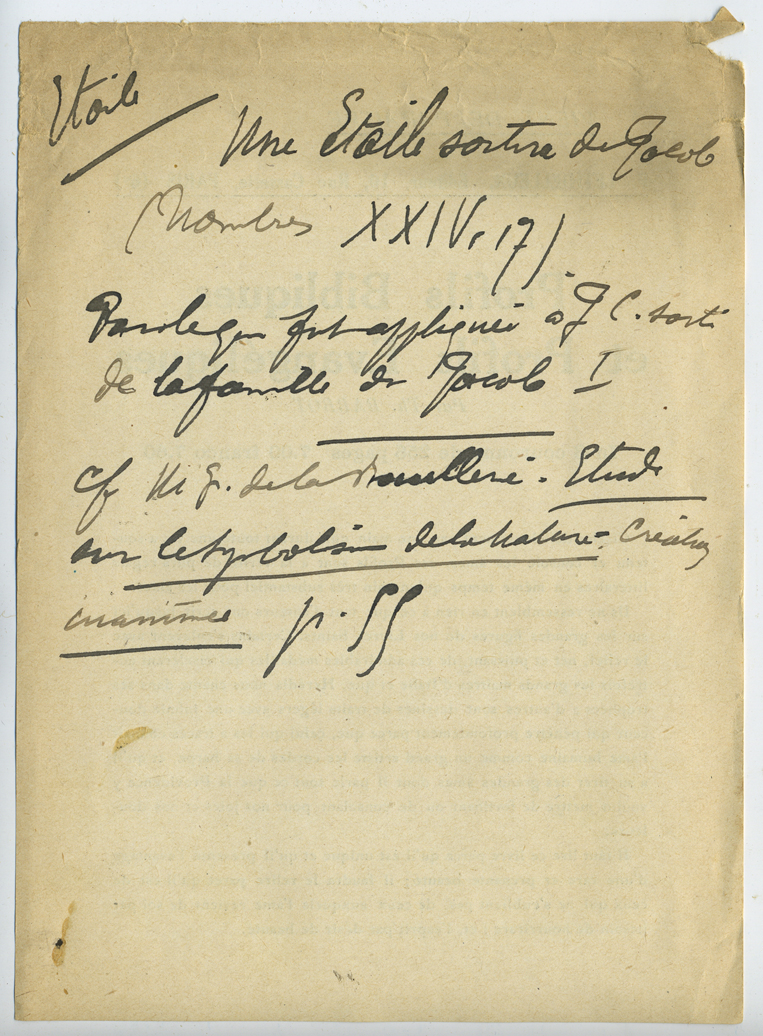 Etoile
Une Etoile sortira de Jacob
(Nombres XXIV, 17)
Parole qui fut appliquée à J C. sorti
de la famille de Jacob I
cf M gr. de la Bouillerie. Etude
sur le symbolisme de la Nature = Création
inanimée p. 55